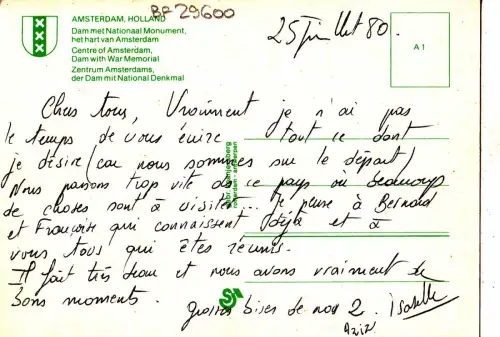 BF 29600
AMSTERDAM, HOLLAND
Dam met Nationaal Monument,
het hart van Amsterdam
Centre of Amsterdam,
Dam with War Memorial
Zentrum Amsterdams,
der Dam mit National Denkmal
25 Juillet 80.
A 1
Chers tous, Vraiment je n'ai pas
le temps de vous écrire tout ce dont
je désire (car nous sommes sur le départ)
Nous passons trop vite dans ce pays où beaucoup
de choses sont à visiter... Je pense à Bernard
et Françoise qui connaissent déjà et à
vous tous qui êtes réunis.
Il fait très beau et nous avons vraiment de
bons moments.
grosses bises de nous 2. Isabelle
Aziz